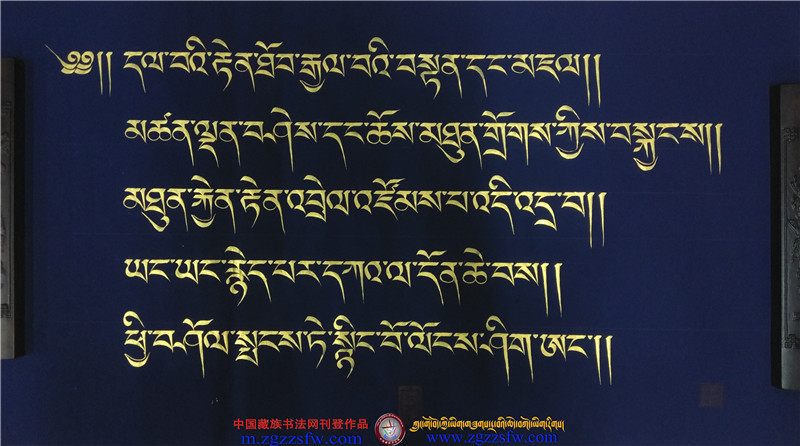 ༄༅།། དལ་བའི་རྟེན་ཐོབ་རྒྱལ་བའི་བསྟན་དང་མཇལ།།
མཚན་ལྡན་བཤེས་དང་ཆོས་མཐུན་གྲོགས་ཀྱིས་བསྐྱངས།།
མཐུན་རྐྱེན་རྟེན་འབྲེལ་འཛོམས་པ་འདི་འདྲ་བ།།
ཡང་ཡང་རྙེད་པར་དཀའ་ལ་དོན་ཆེ་བས།།
ཕྱི་བཤོལ་སྤངས་ཏེ་སྙིང་པོ་ལོངས་ཤིག་ཨང་།།
中国藏族书法网刊登作品
m.zgzzsfw.com www.zgzzsfw.com